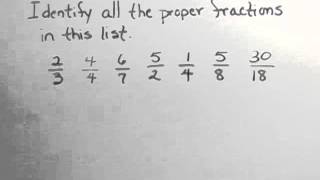 Identify all the proper fractions
in this list.
2/3 4/4 6/7 5/2 1/4 5/8 30/18